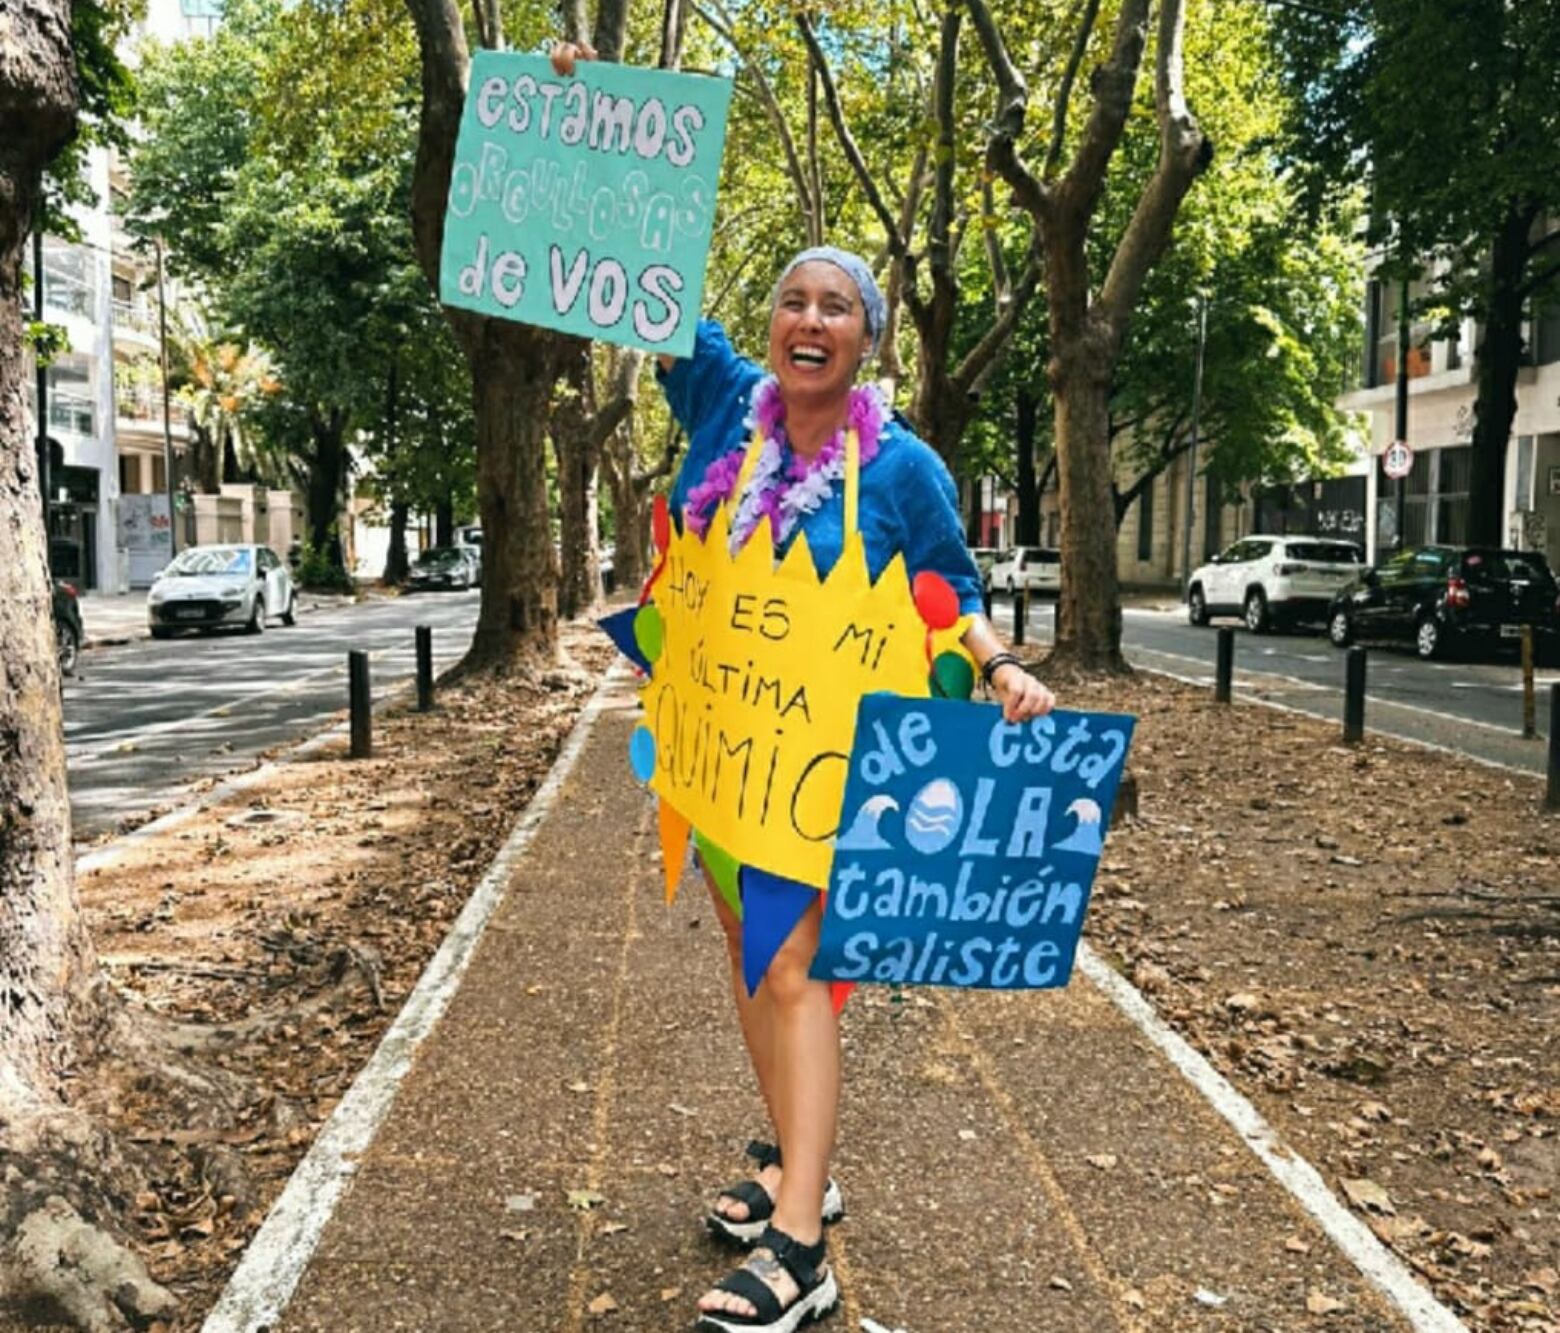 estamos
ORGULLOSAS
de VOS
HOY ES Mi
ÚLTiMA
QUiMiO
de esta
OLA
también
saliste